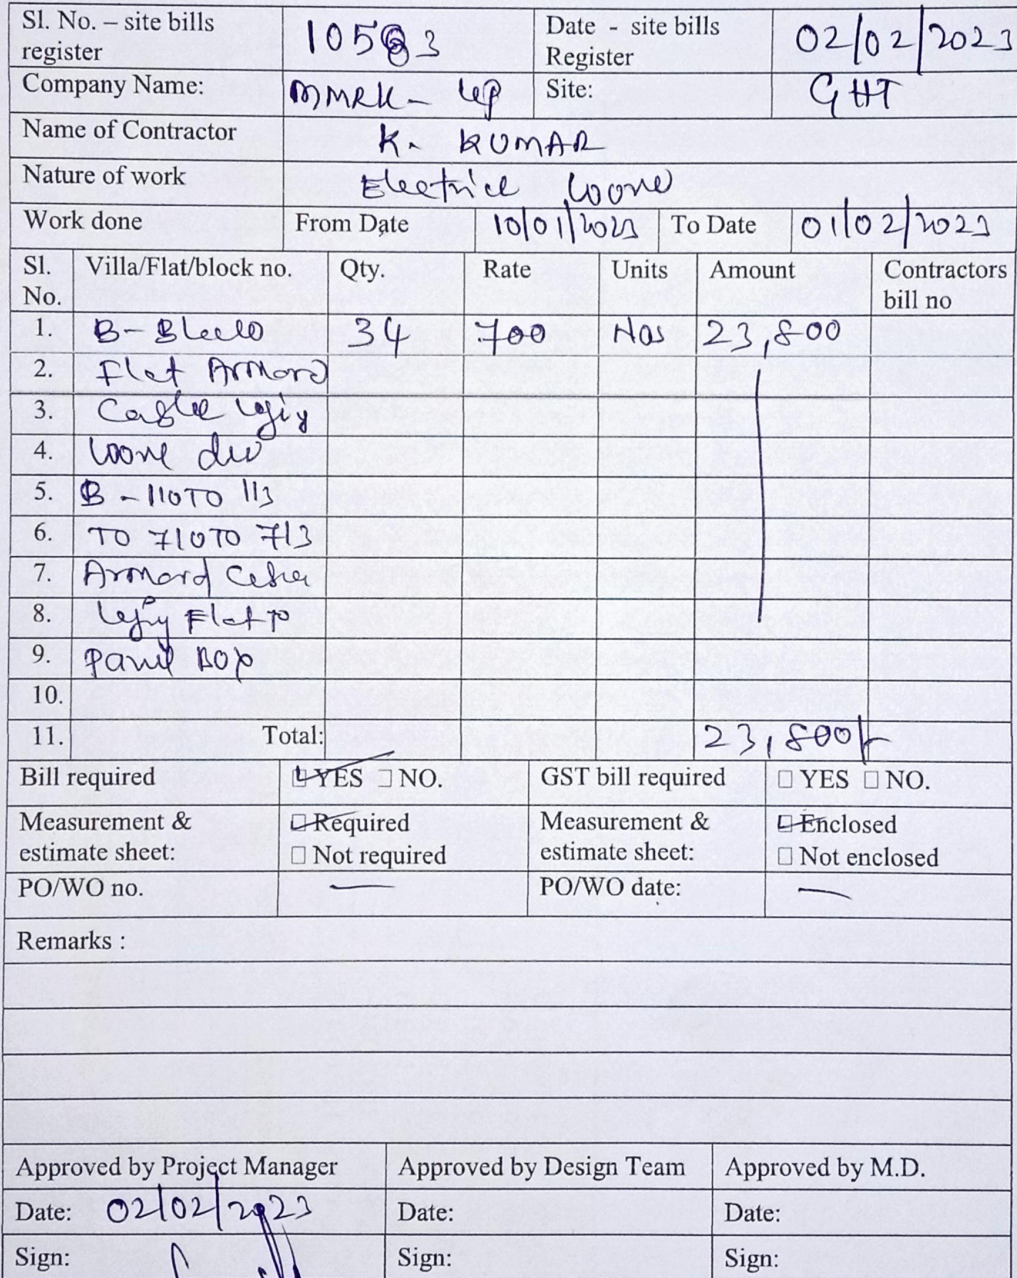 Sl. No. – site bills register 105 3 Date - site bills Register 02/02/2023
Company Name: MMRK- Site: GHT
Name of Contractor K. KUMAR
Nature of work
Work done From Date 10/01/2023 To Date 01/02/2023
Sl. No. Villa/Flat/block no. Qty. Rate Units Amount Contractors bill no
1. 34 700 Nos 23,800
2. Flat Armord
3.
4.
5. B - 110 TO 113
6. TO 710 TO 713
7. Armord
8. Flat
9. Box
10
11. Total: 23,800/-
Bill required YES □ NO. GST bill required □ YES □ NO.
Measurement & estimate sheet: Required □ Not required Measurement & estimate sheet: Enclosed □ Not enclosed
PO/WO no. — PO/WO date: —
Remarks :
Approved by Project Manager Approved by Design Team Approved by M.D.
Date: 02/02/2023 Date: Date:
Sign: Sign: Sign: